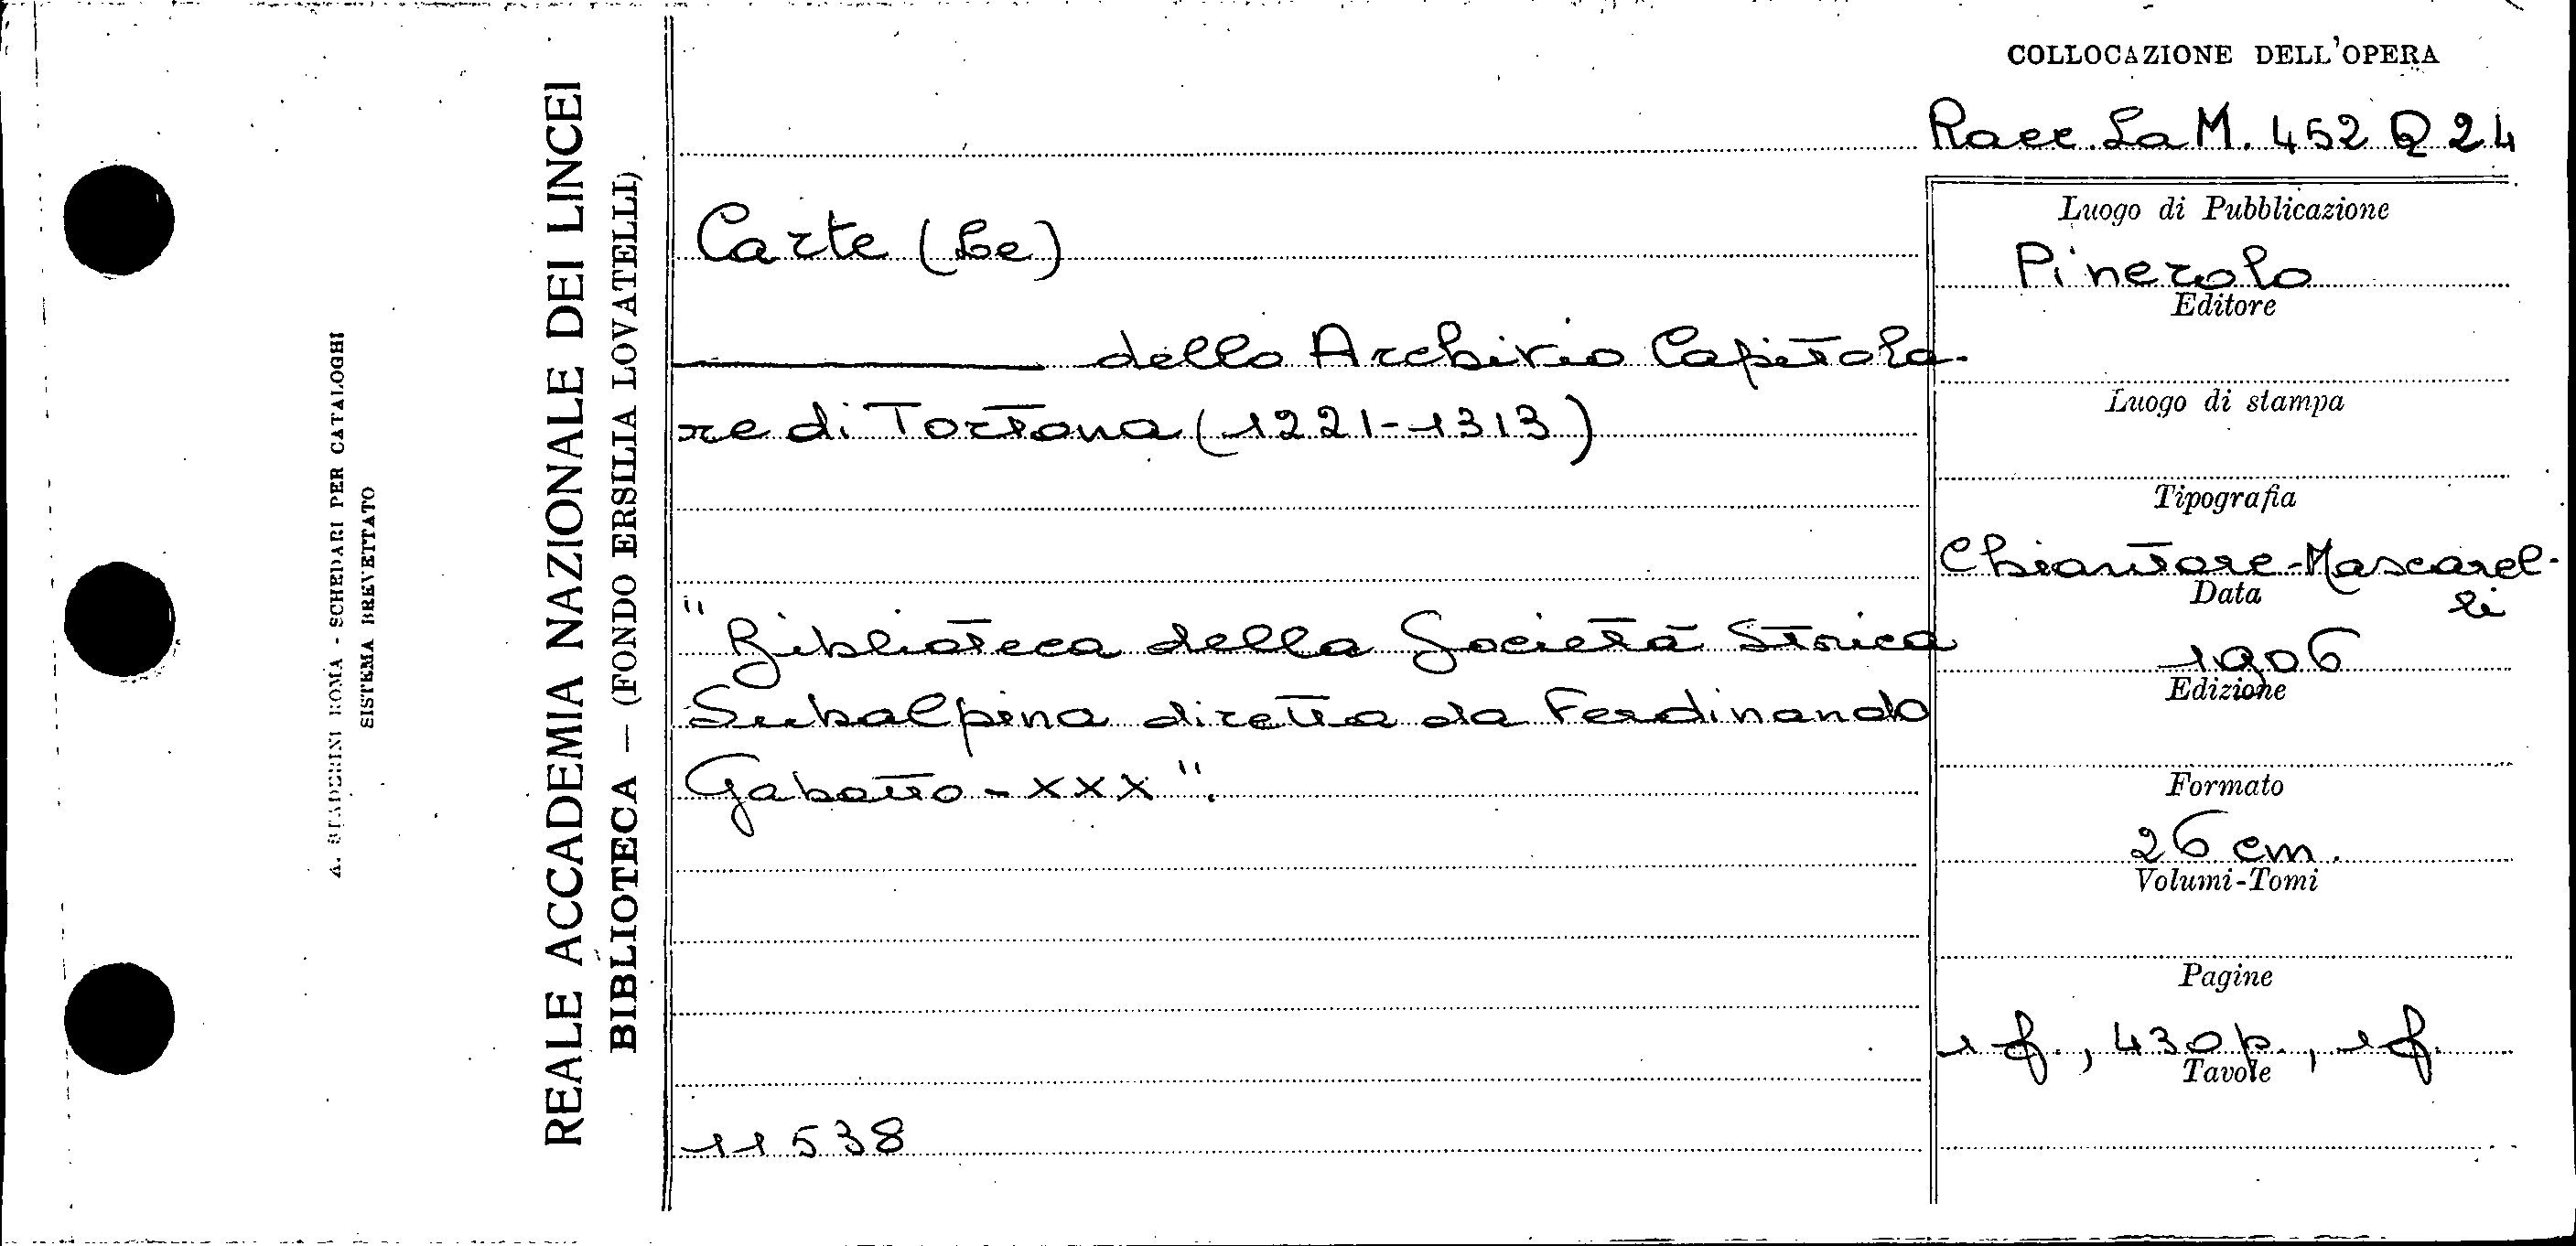 COLLOCAZIONE DELL'OPERA
Racc. La M. 452 Q 24
Carte (Le)
dello Archivio Capitola-
re di Tortona (1221-1313)
"Biblioteca della Società Storica
Subalpina diretta da Ferdinando
Gabotto - XXX".
11538
Luogo di Pubblicazione
Pinerolo
Editore
Luogo di stampa
Tipografia
Chiantore-Mascarel-
li
Data
1906
Edizione
Formato
26 cm.
Volumi-Tomi
Pagine
1 f., 430 p., 1 f.
Tavole
REALE ACCADEMIA NAZIONALE DEI LINCEI
BIBLIOTECA — (FONDO ERSILIA LOVATELLI)
A. STADERINI ROMA - SCHEDARI PER CATALOGHI
SISTEMA BREVETTATO